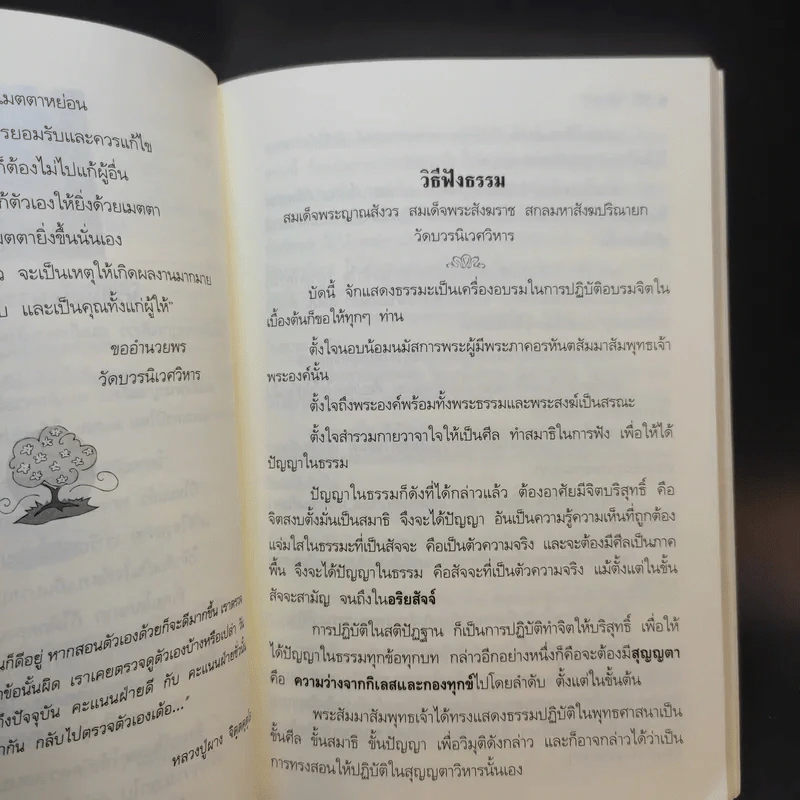 เมตตาหย่อน
รยอมรับและควรแก้ไข
ก็ต้องไม่ไปแก้ผู้อื่น
ก้ตัวเองให้ยิ่งด้วยเมตตา
มตตายิ่งขึ้นนั่นเอง
จะเป็นเหตุให้เกิดผลงานมากมาย
และเป็นคุณทั้งแก่ผู้ให้"
ขออำนวยพร
วัดบวรนิเวศวิหาร
นก็ดีอยู่ หากสอนตัวเองด้วยก็จะดีมากขึ้น เราตรวจ
าข้อนั้นผิด เราเคยตรวจดูตัวเองบ้างหรือเปล่า
ถึงปัจจุบัน คะแนนฝ่ายดี กับ คะแนนฝ่ายชั่วนั้น
ากัน กลับไปตรวจตัวเองเด้อ..."
หลวงปู่ผาง
วิธีฟังธรรม
สมเด็จพระญาณสังวร สมเด็จพระสังฆราช สกลมหาสังฆปริณายก
วัดบวรนิเวศวิหาร
บัดนี้ จักแสดงธรรมะเป็นเครื่องอบรมในการปฏิบัติอบรมจิตใน
เบื้องต้นก็ขอให้ทุกๆ ท่าน
ตั้งใจนอบน้อมนมัสการพระผู้มีพระภาคอรหันตสัมมาสัมพุทธเจ้า
พระองค์นั้น
ตั้งใจถึงพระองค์พร้อมทั้งพระธรรมและพระสงฆ์เป็นสรณะ
ตั้งใจสำรวมกายวาจาใจให้เป็นศีล ทำสมาธิในการฟัง เพื่อให้ได้
ปัญญาในธรรม
ปัญญาในธรรมก็ดังที่ได้กล่าวแล้ว ต้องอาศัยมีจิตบริสุทธิ์ คือ
จิตสงบตั้งมั่นเป็นสมาธิ จึงจะได้ปัญญา อันเป็นความรู้ความเห็นที่ถูกต้อง
แจ่มใสในธรรมะที่เป็นสัจจะ คือเป็นตัวความจริง และจะต้องมีศีลเป็นภาค
พื้น จึงจะได้ปัญญาในธรรม คือสัจจะที่เป็นตัวความจริง แม้ตั้งแต่ในขั้น
สัจจะสามัญ จนถึงในอริยสัจจ์
การปฏิบัติในสติปัฏฐาน ก็เป็นการปฏิบัติทำจิตให้บริสุทธิ์ เพื่อให้
ได้ปัญญาในธรรมทุกข้อทุกบท กล่าวอีกอย่างหนึ่งก็คือจะต้องมีสุญญตา
คือ ความว่างจากกิเลสและกองทุกข์ไปโดยลำดับ ตั้งแต่ในขั้นต้น
พระสัมมาสัมพุทธเจ้าได้ทรงแสดงธรรมปฏิบัติในพุทธศาสนาเป็น
ขั้นศีล ขั้นสมาธิ ขั้นปัญญา เพื่อวิมุติดังกล่าว และก็อาจกล่าวได้ว่าเป็น
การทรงสอนให้ปฏิบัติในสุญญตาวิหารนั้นเอง